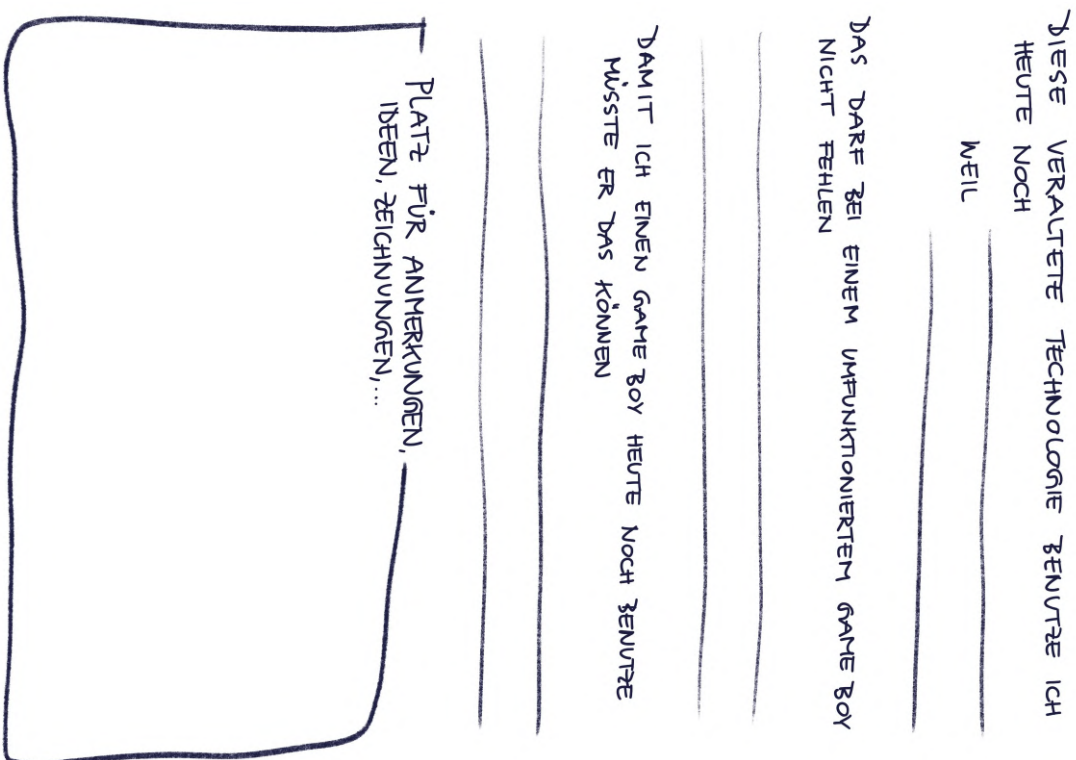 DIESE VERALTETE TECHNOLOGIE BENUTZE ICH
HEUTE NOCH
WEIL
DAS DARF BEI EINEM UMFUNKTIONIERTEM GAME BOY
NICHT FEHLEN
DAMIT ICH EINEN GAME BOY HEUTE NOCH BENUTZE
MÜSSTE ER DAS KÖNNEN
PLATZ FÜR ANMERKUNGEN,
IDEEN, ZEICHNUNGEN,...